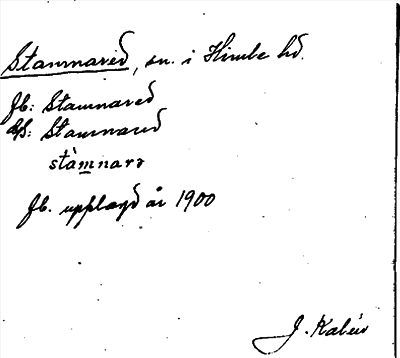 Stamnared, sn. i Himle hd.
jb: Stamnared
ds: Stamnared
stàmnarə
jb. upplagd år 1900
J. Kalén